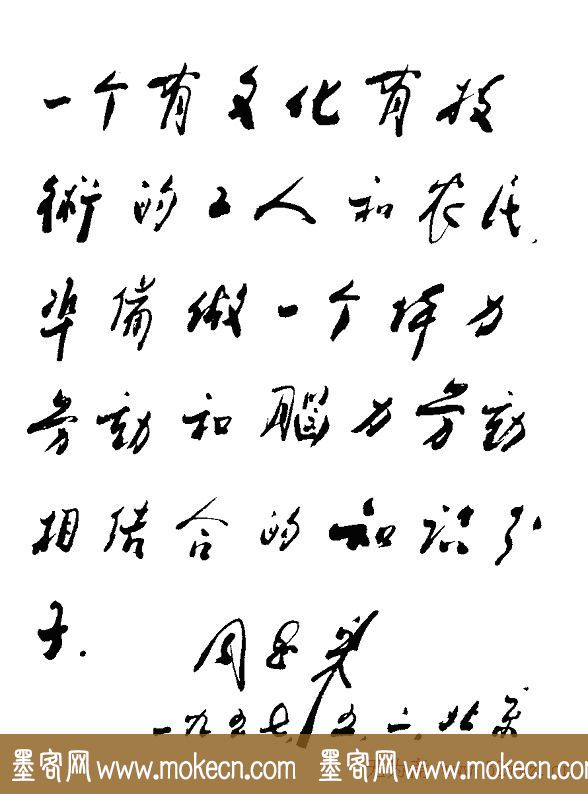 一个有文化有技
術的工人和农民，
準備做一个体力
劳动和腦力劳动
相结合的知识分
子.
周恩来
一九五七,五,二,北京
墨客网 www.mokecn.com 墨客网 www.mokecn.com